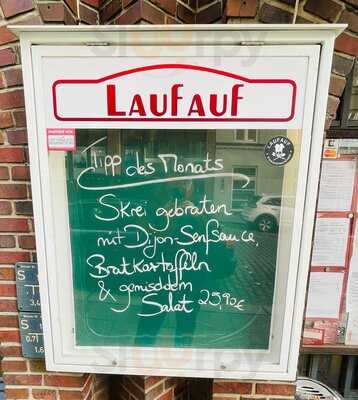 LAUFAUF
LAUFAUF
Tipp des Monats
Skrei gebraten
mit Dijon-Senfsauce,
Bratkartoffeln
& gemischtem
Salat 25,90€
S
3,4
S
1.6